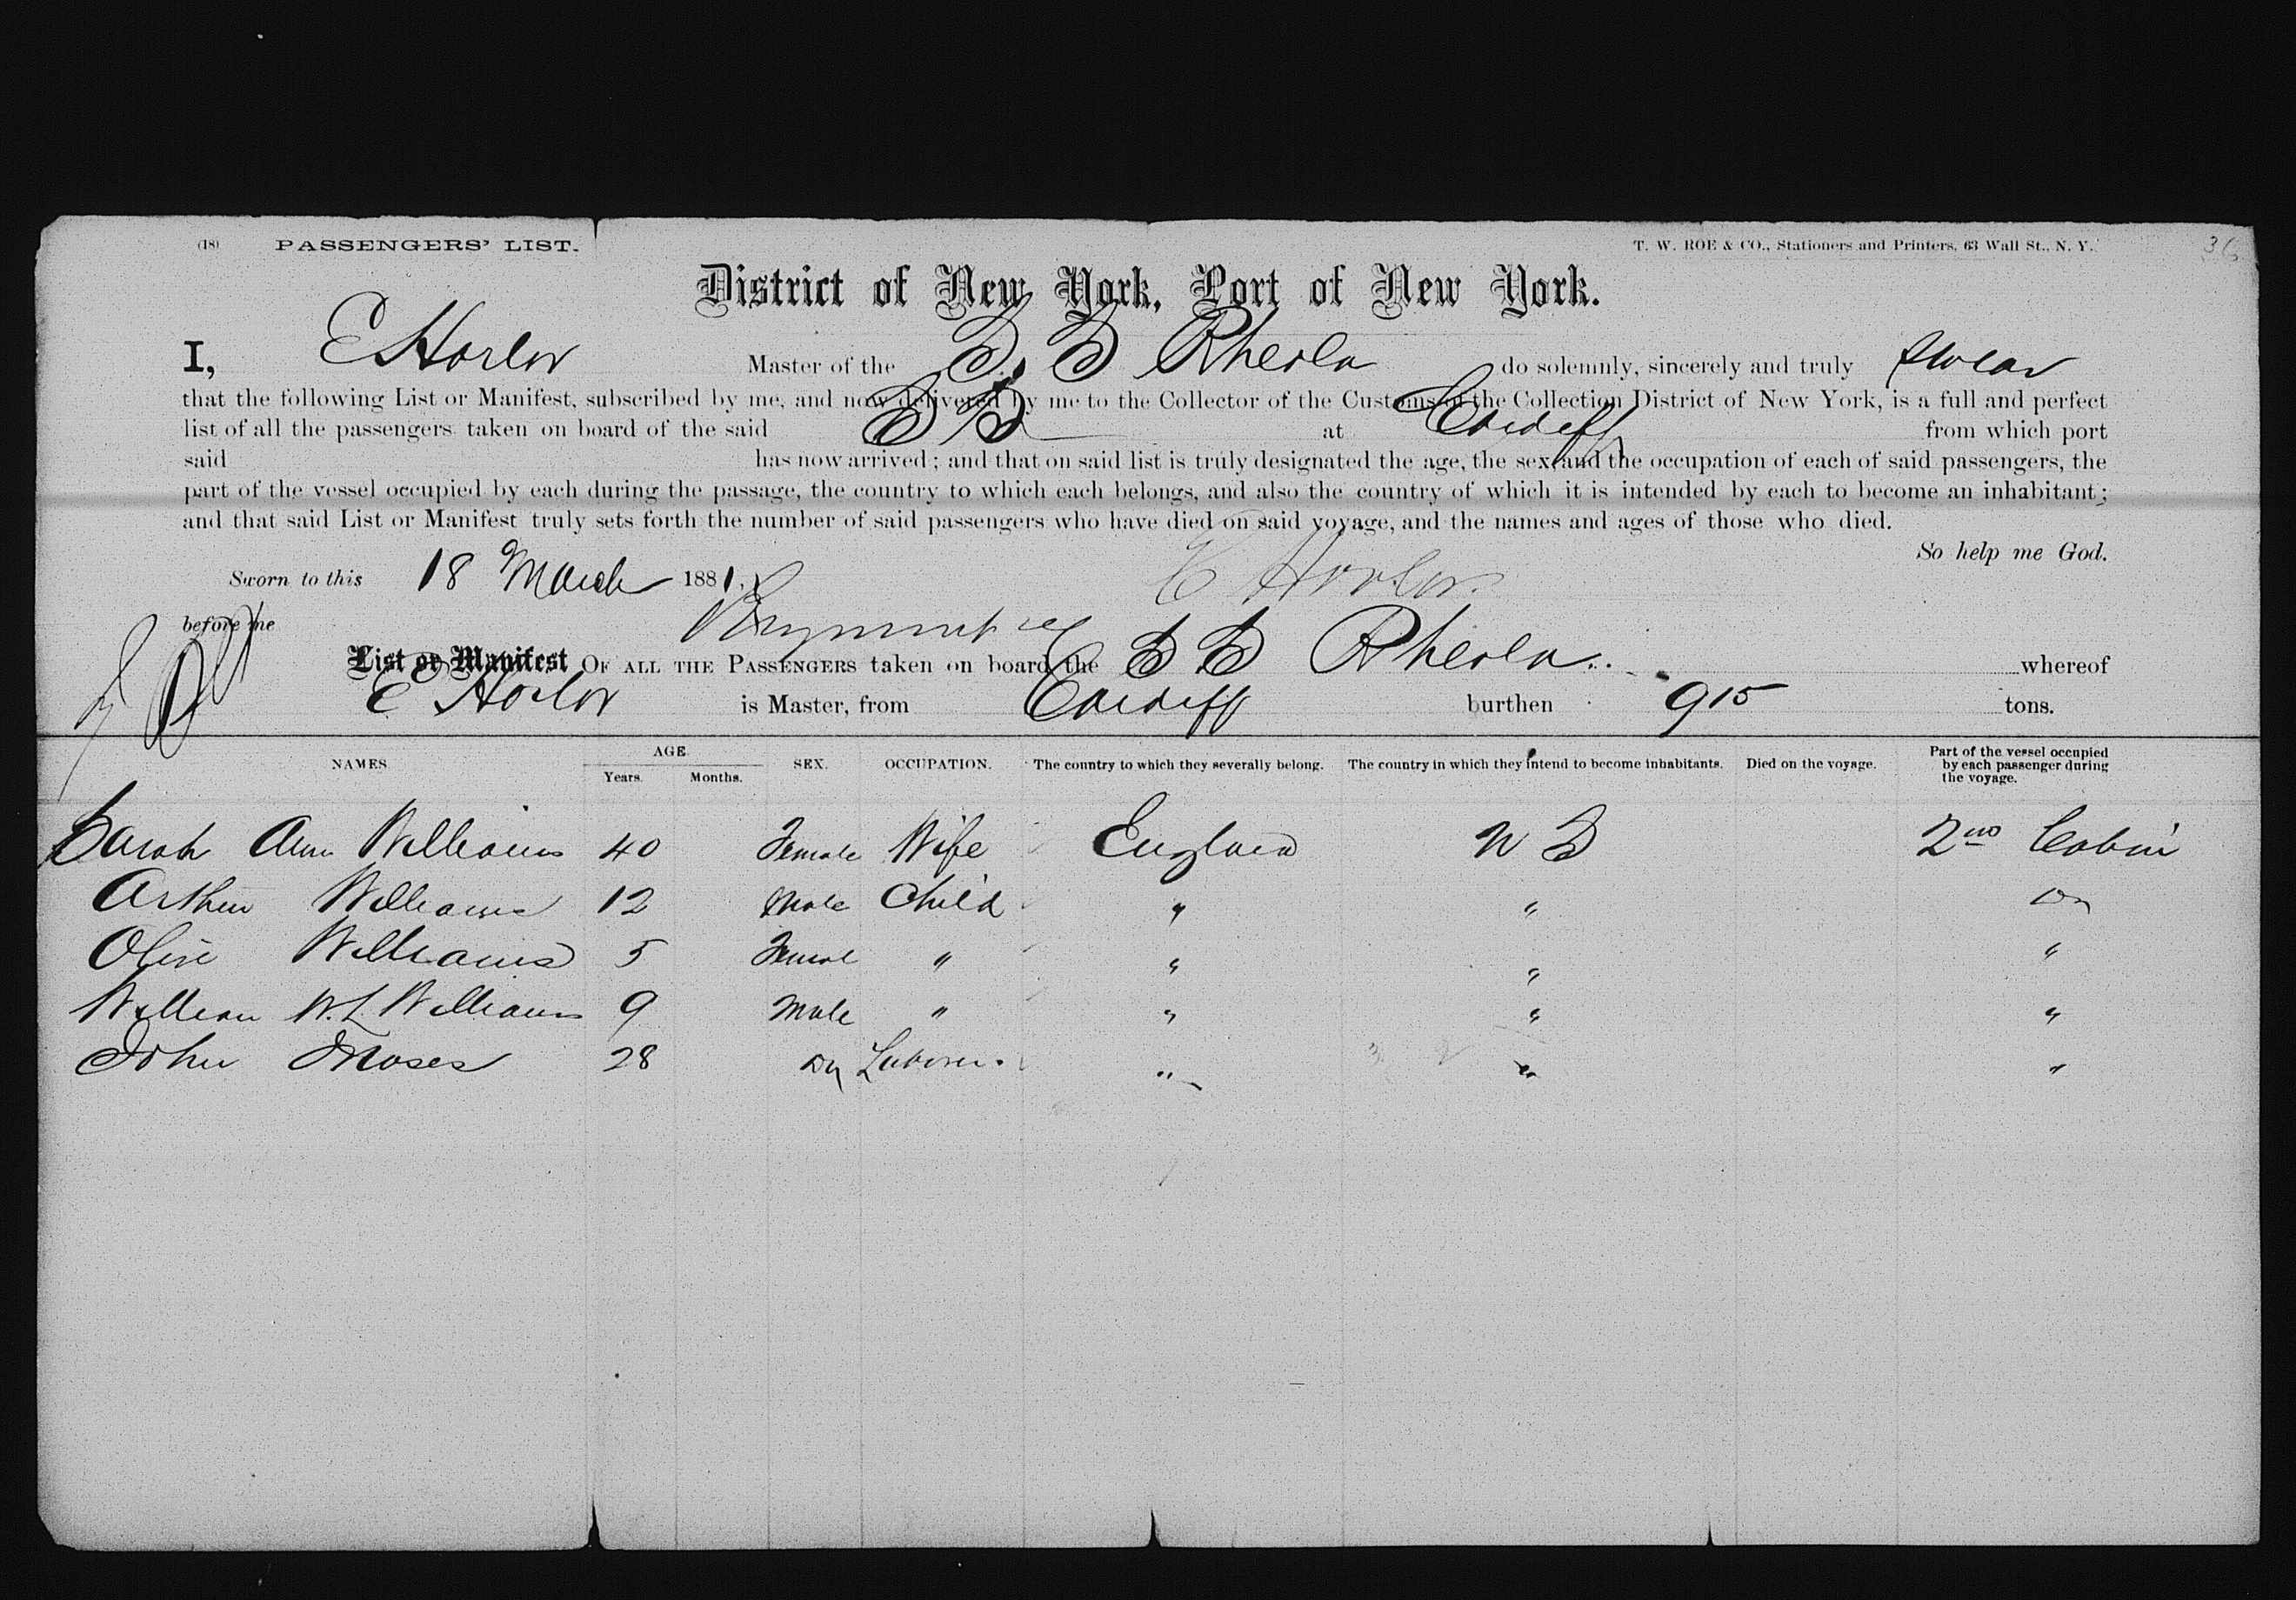 (18) PASSENGERS' LIST. T. W. ROE & CO., Stationers and Printers, 63 Wall St., N. Y.
District of New York, Port of New York.
I, E Horlor Master of the S. S Rheola do solemnly, sincerely and truly swear
that the following List or Manifest, subscribed by me, and now delivered by me to the Collector of the Customs of the Collection District of New York, is a full and perfect
list of all the passengers taken on board of the said S S at Cardiff from which port
said has now arrived; and that on said list is truly designated the age, the sex and the occupation of each of said passengers, the
part of the vessel occupied by each during the passage, the country to which each belongs, and also the country of which it is intended by each to become an inhabitant;
and that said List or Manifest truly sets forth the number of said passengers who have died on said voyage, and the names and ages of those who died.
So help me God.
Sworn to this 18 March 1881. E Horlor.
before me
List or Manifest OF ALL THE PASSENGERS taken on board the S S Rheola. whereof
E Horlor is Master, from Cardiff burthen 915 tons.
NAMES AGE Years. Months. SEX. OCCUPATION. The country to which they severally belong. The country in which they intend to become inhabitants. Died on the voyage. Part of the vessel occupied by each passenger during the voyage.
Sarah Ann Williams 40 Female Wife England U S 2nd Cabin
Arthur Williams 12 Male Child " " Do
Olive Williams 5 Female " " " "
William W. L Williams 9 Male " " " "
John Moses 28 Do Laborer. " " "